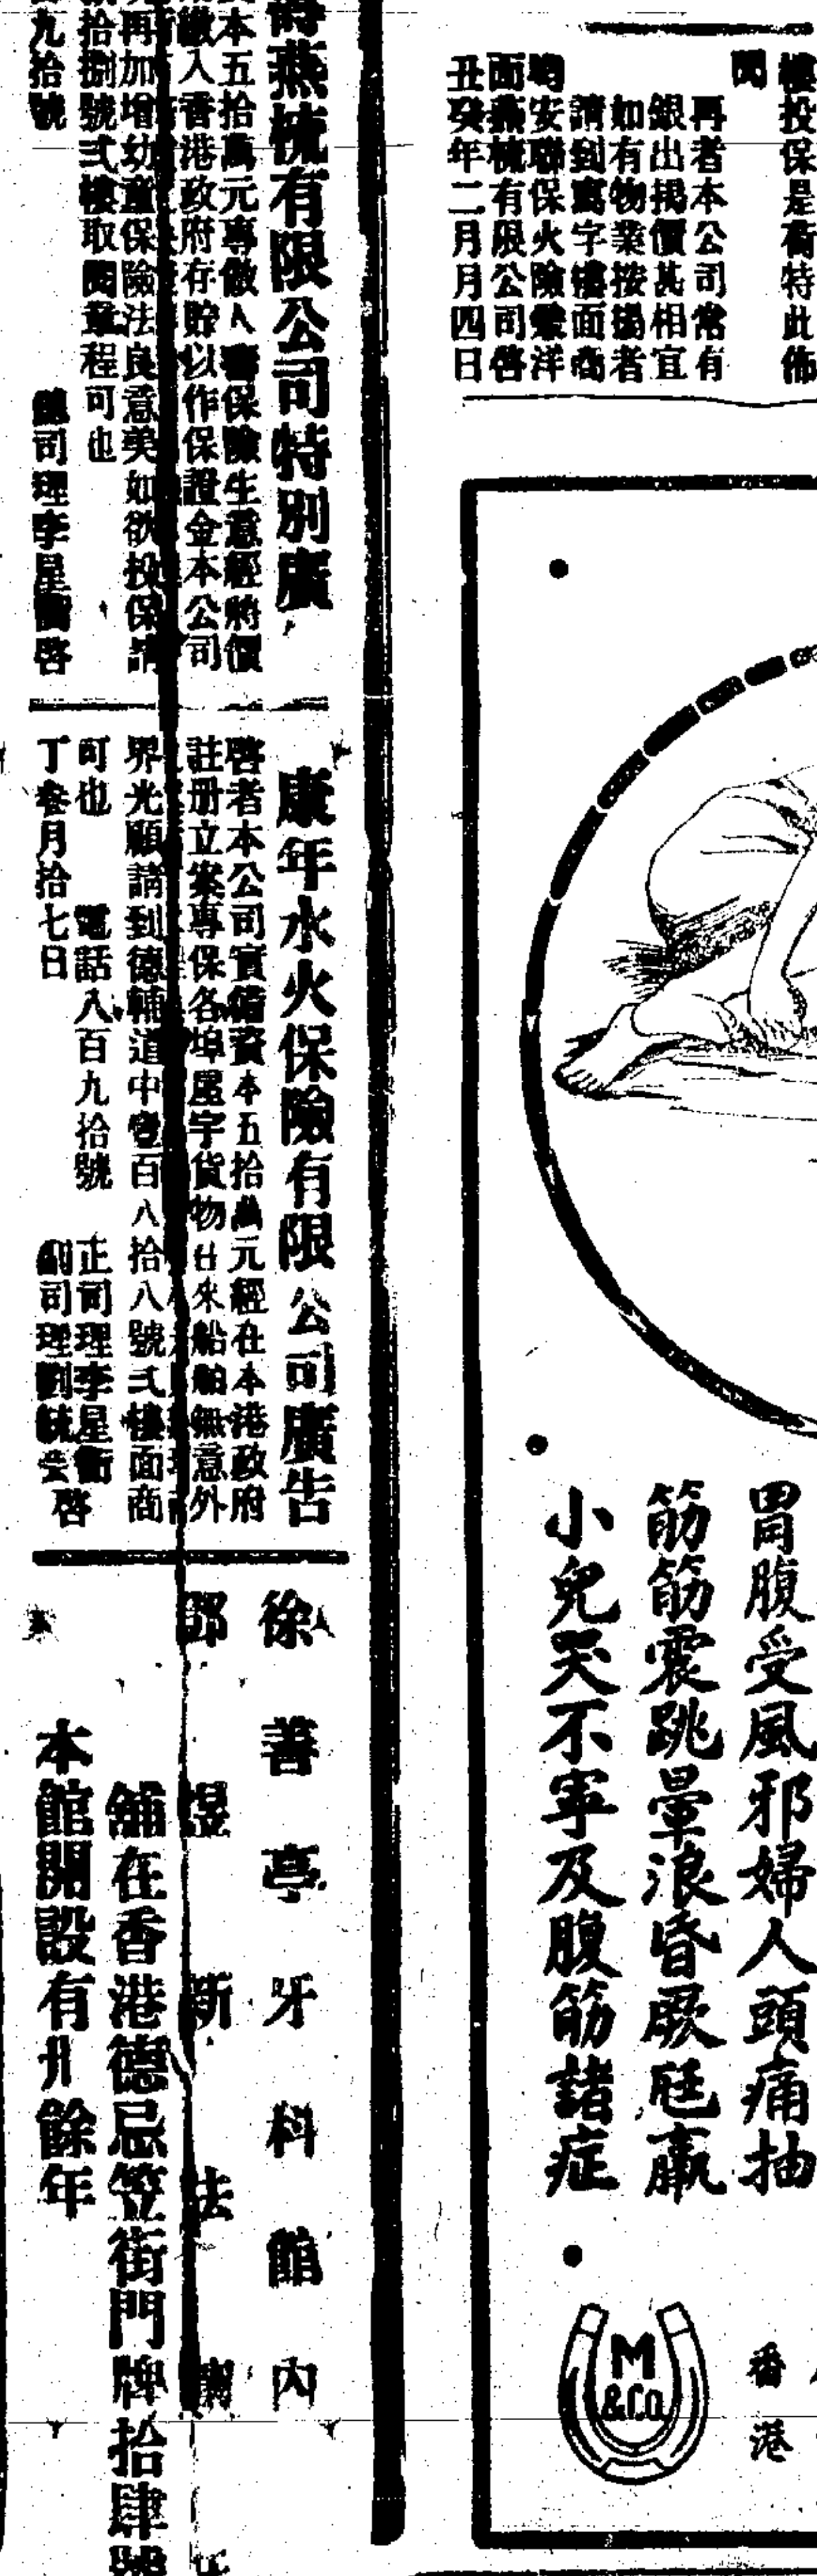 樓投保是荷特此佈
聞
再者本公司常有
銀出揭價甚相宜
如有物業按揭者
請到寫字樓面商
安聯保火險兼洋
面燕梳有限公司啓
丑癸年二月月四日
胃腹受風邪婦人頭痛抽
筋筋震跳暈浪昏厥
小兒哭不寧及腹筋諸症
M
&Co.
香港
燕梳有限公司特別廣
本五拾萬元專做人壽保險生意經將價
繳入香港政府存貯以作保證金本公司
再加增幼童保險法良意美如欲投保請
拾捌號弍樓取閱章程可也
九拾號
總司理李星衢啓
康年水火保險有限公司廣告
啓者本公司實備資本五拾萬元經在本港政府
註册立案專保各埠屋宇貨物來船舶無意外
界光顧請到德輔道中壹百八拾八號弍樓面商
可也 電話八百九拾號 正司理李星衢
丁叁月拾七日 副司理劉毓芸啓
徐善亭牙科館內
新法
舖在香港德忌笠街門牌拾肆號
本館開設有卅餘年